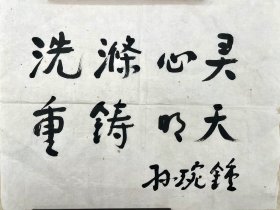 洗滌心灵
重铸明天
孙琬鍾